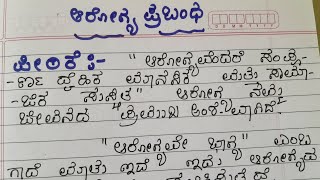 ಆರೋಗ್ಯ ಪ್ರಬಂಧ
ಪೀಠಿಕೆ :-
"ಆರೋಗ್ಯವೆಂದರೆ ಸಂಪೂ-
-ರ್ಣ ದೈಹಿಕ ಮಾನಸಿಕ ಮತ್ತು ಸಾಮಾ-
-ಜಿಕ ಸುಸ್ಥಿತಿ" ಆರೋಗ್ಯ ನಮ್ಮ
ಜೀವನದ ಪ್ರಮುಖ ಅಂಶವಾಗಿದೆ.
"ಆರೋಗ್ಯವೇ ಭಾಗ್ಯ" ಎಂಬ
ಗಾದೆ ಮಾತು ಇದೆ ಇದು ಆರೋಗ್ಯದ